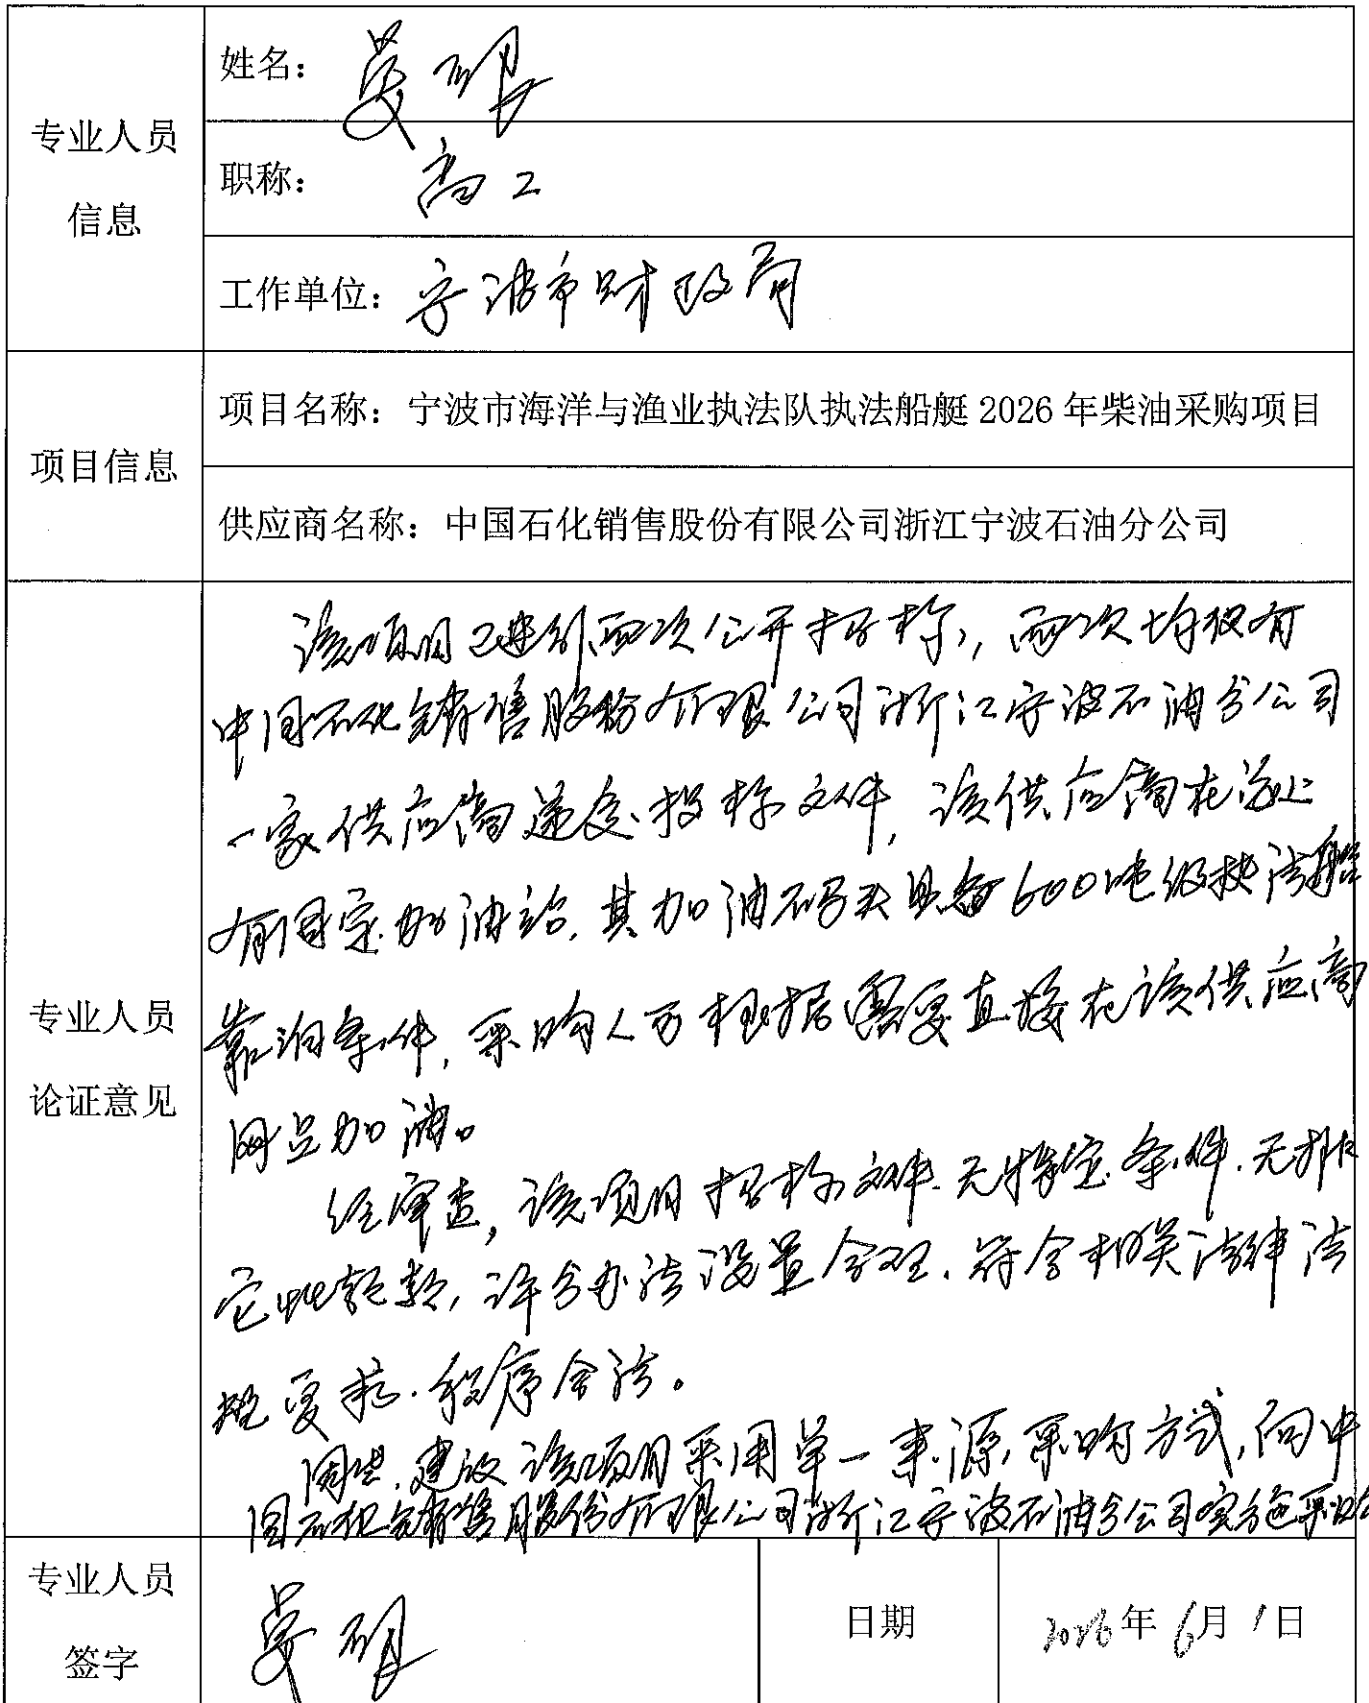 专业人员
信息
姓名：
职称：高工
工作单位：宁波市财政局
项目信息
项目名称：宁波市海洋与渔业执法队执法船艇 2026 年柴油采购项目
供应商名称：中国石化销售股份有限公司浙江宁波石油分公司
专业人员
论证意见
该项目已进行两次公开招标，两次均仅有
中国石化销售股份有限公司浙江宁波石油分公司
一家供应商递交投标文件，该供应商在海上
有固定加油站，其加油码头具备600吨级执法船
靠泊条件，采购人可根据需要直接在该供应商
网点加油。
经审查，该项目招标文件无特定条件、无排
它性条款，评分办法设置合理，符合相关法律法
规要求，程序合法。
因此，建议该项目采用单一来源采购方式，向中
国石化销售股份有限公司浙江宁波石油分公司实施采购
专业人员
签字
日期
2026年6月1日